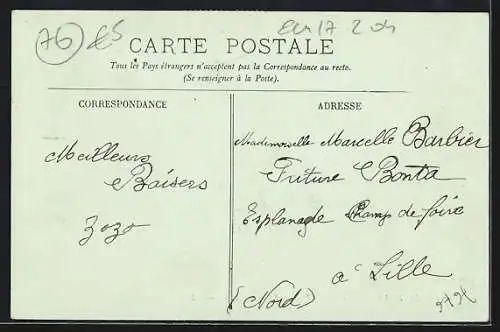 76
CARTE POSTALE
Tous les Pays étrangers n'acceptent pas la Correspondance au recto.
(Se renseigner à la Poste).
CORRESPONDANCE
ADRESSE
Meilleurs
Baisers
Zozo
Mademoiselle Marcelle Barbier
Friture Bonta
Esplanade Champ de foire
à Lille
(Nord)